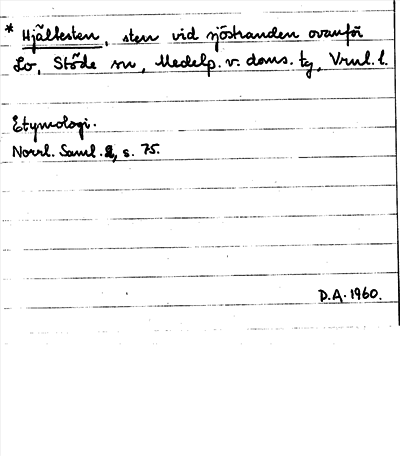 * Hjällesten, sten vid sjöstranden ovanför
Lo, Stöde sn, Medelp. v. doms. tg, Vrnl. l.
Etymologi.
Norrl. Saml. 2, s. 75.
D.A. 1960.